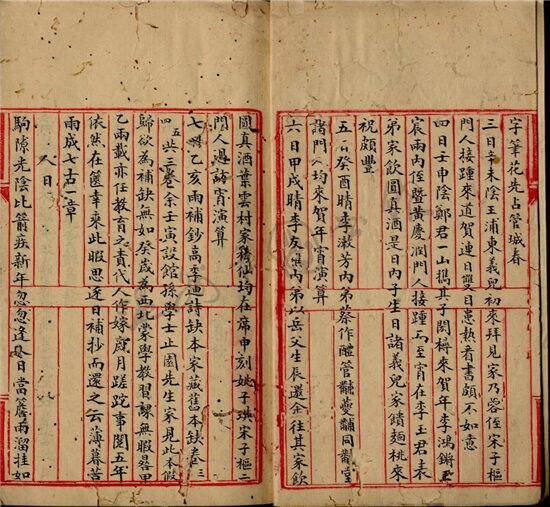 字筆花先占管城春
三日辛未陰王浦東義兒初來拜見家乃蓉侄宋子樞
門人接踵來道賀連日雙目患熱看書頗不如意
四日壬申陰鄭君一山攜其子閎樽來賀年李鴻鏘玉
宸兩內侄暨黃慶潤門人接踵而至宵在李玉君表
弟家飲圓真酒是日內子生日諸義兒家饋麵桃來
祝頗豐
五日癸酉晴李漱芳內弟蔡作醴管鼗同
諸門人均來賀年宵演算
六日甲戌晴李友內弟以岳父生辰還余往其家飲
圓真酒葉雲村家鶴仙均在席申刻姚子琪宋子樞二
門人過訪宵演算
七日乙亥雨補鈔高季迪詩缺本家藏舊本缺卷三
四五共三卷余壬寅設館孫學士止園先生家見此本假
歸欲為補缺無如癸歲為西北蒙學教習課無暇晷甲
乙兩載亦任教育之責代人作嫁歲月蹉跎事閱五年
依然在篋幸乘此暇思逐日補抄而還之云薄暮苦
雨成七古一章
人日
駒隙光陰比箭疾新年忽忽逢人日當簷雨溜挂如